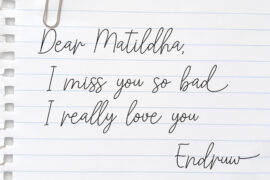 Dear Matildha,
I miss you so bad
I really love you
Endruw